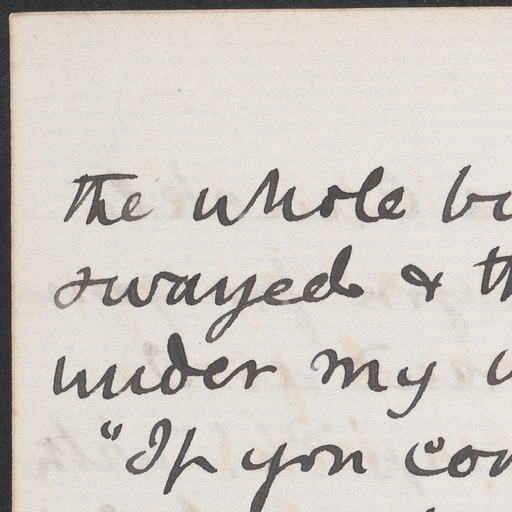 the whole bo
swayed & th
under my
"If you con